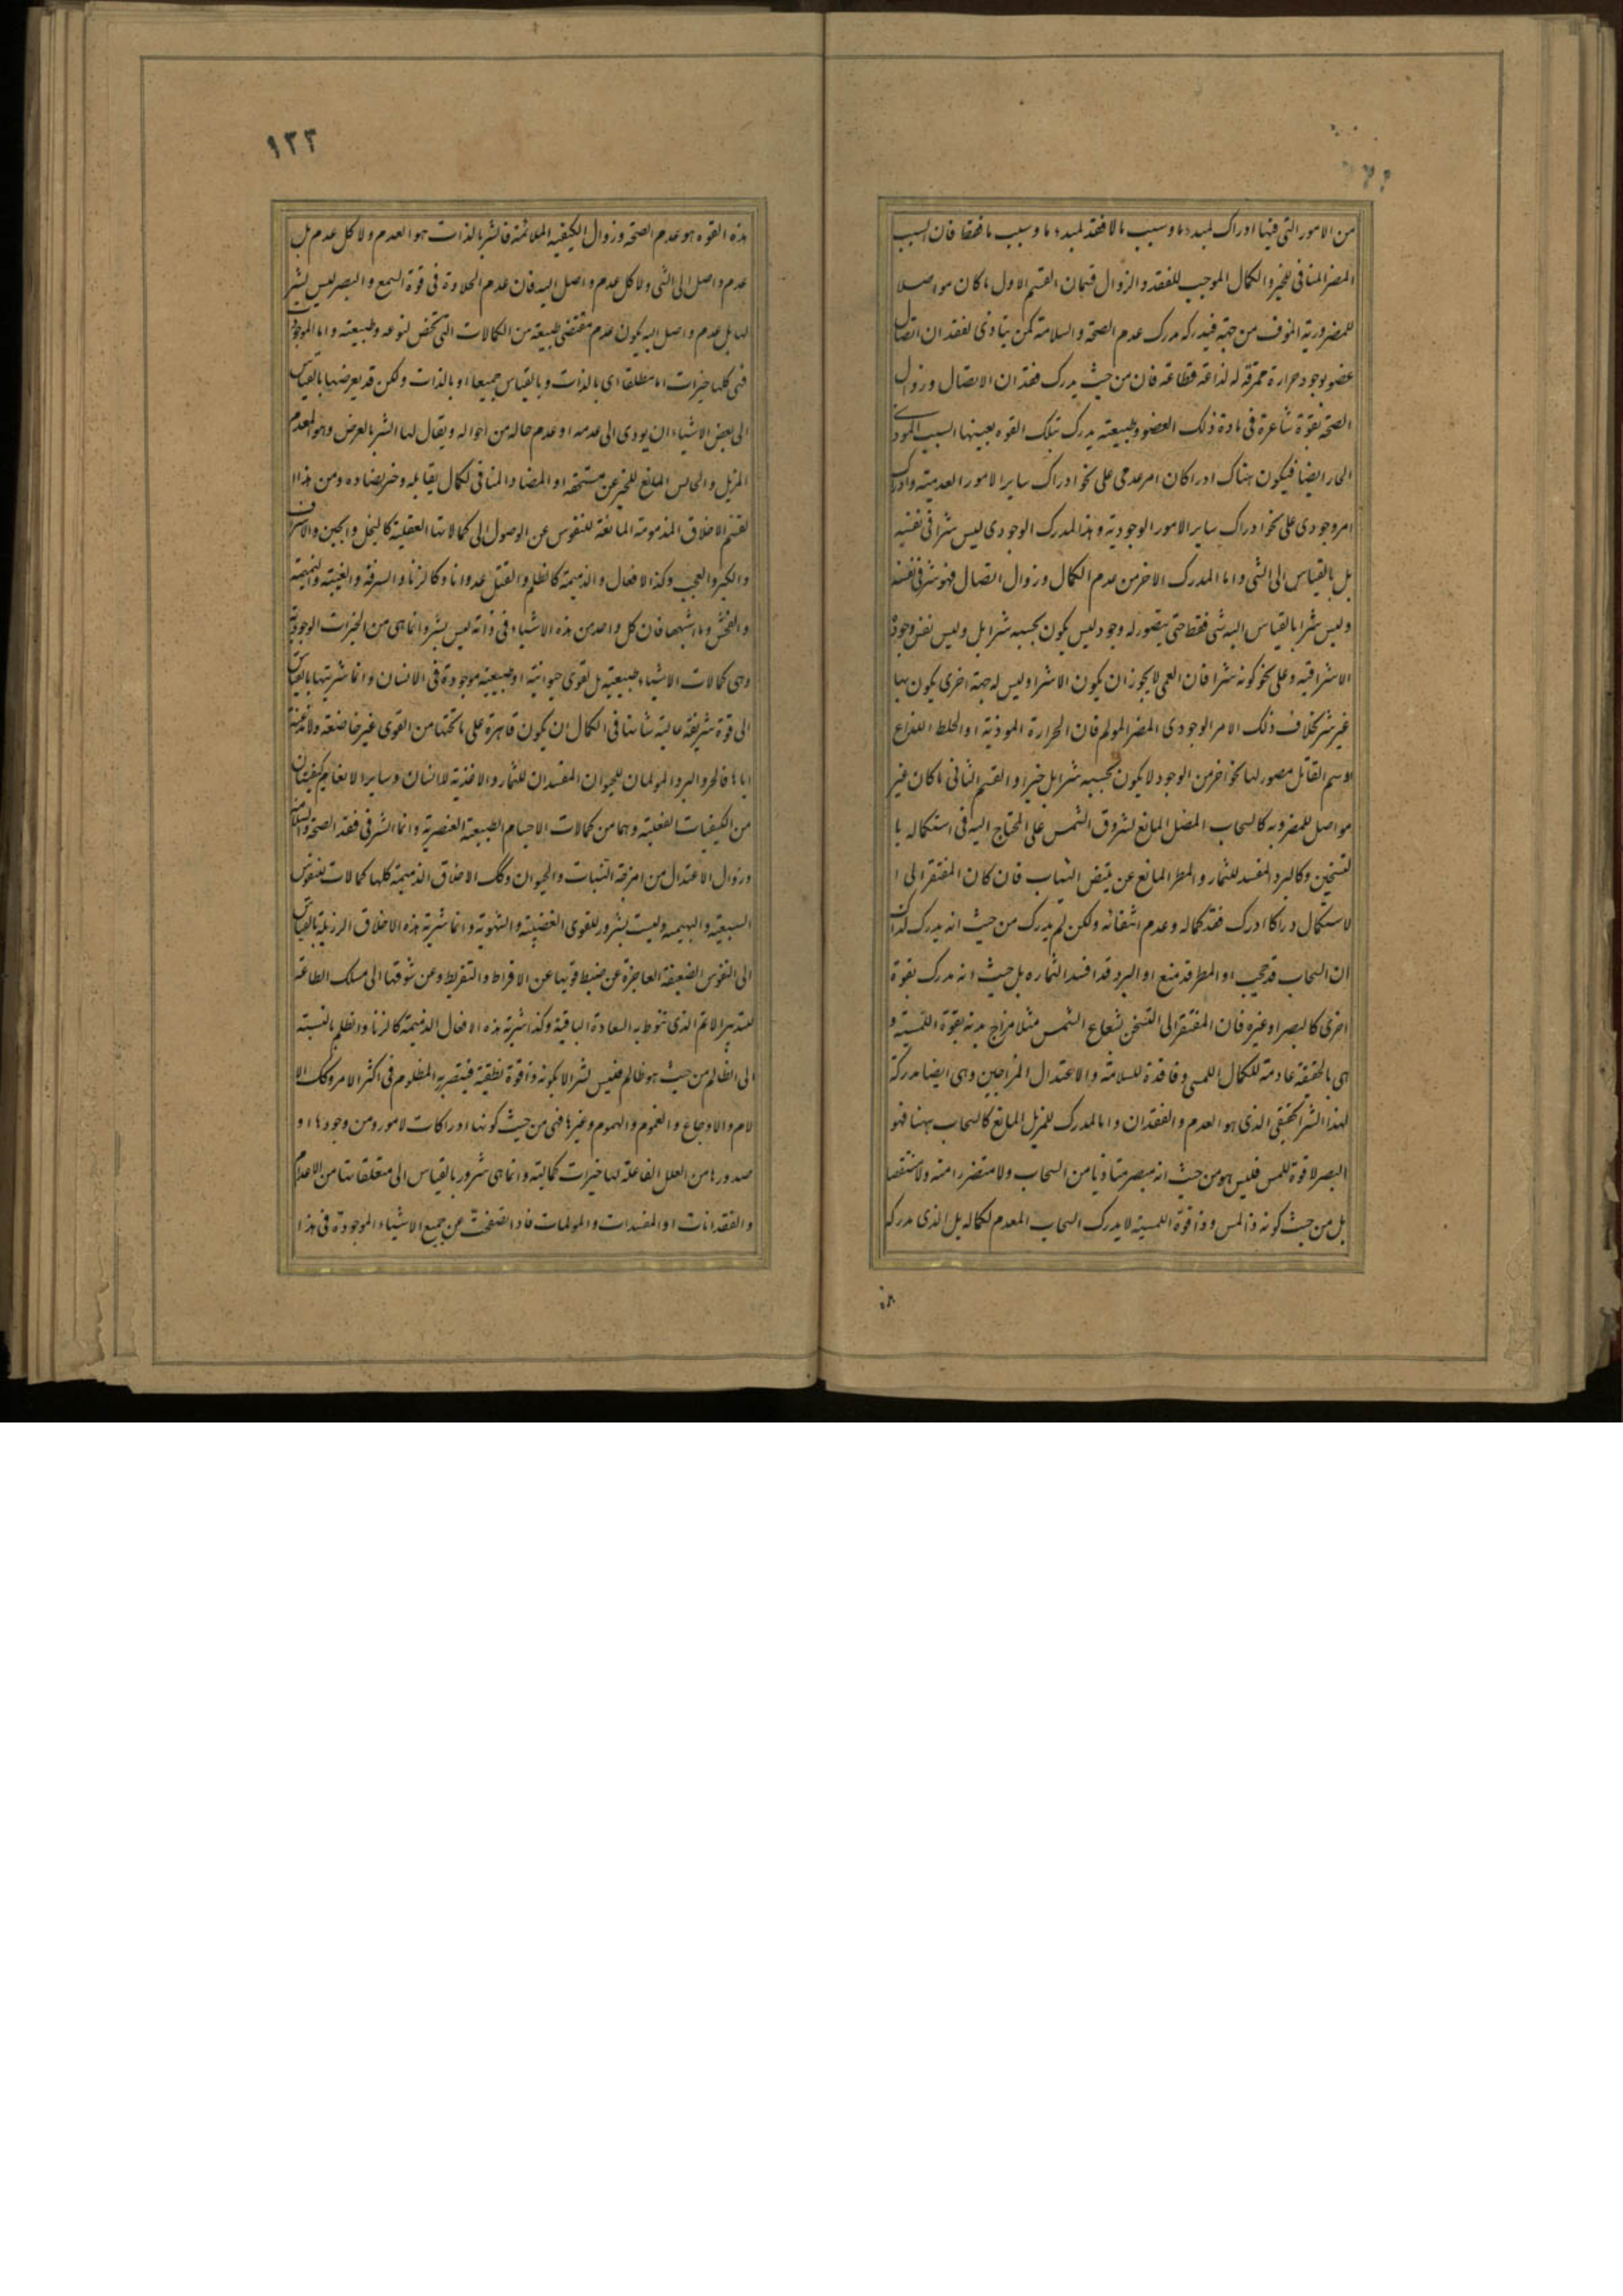 من الامور التى فيها ادراك لمبدء ما وسبب ما لا فقد لمبدء ما وسبب ما فقط فان السبب
المضر المنافى للخير والكمال الموجب للفقد والزوال قسمان القسم الاول ما كان مواصلا
للمضرور به المؤف من جهته فيدركه مدرك عدم الصحة والسلامة كمن يتاذى لفقدان اتصال
عضو بوجود حرارة ممزقة له لذاعة قطاعة فان من حيث يدرك فقدان الاتصال وزوال
الصحة بقوة شاعرة فى مادة ذلك العضو وطبيعته يدرك بتلك القوه بعينها السبب الموذى
الحار ايضا فيكون هناك ادراكان امر عدمى على نحو ادراك ساير الامور العدمية وادراك
امر وجودى على نحو ادراك ساير الامور الوجودية وهذا المدرك الوجودى ليس شرا فى نفسه
بل بالقياس الى الشى واما المدرك الاخر من عدم الكمال وزوال اتصال فهو شر فى نفسه
وليس شرا بالقياس اليه شى فقط حتى يتصور له وجود ليس يكون بحسبه شرا بل وليس نفس وجوده
الا شرا فيه وعلى نحو كونه شرا فان العمى لا يجوز ان يكون الا شرا وليس له جهة اخرى يكون بها
غير شر بخلاف ذلك الامر الوجودى المضر المولم فان الحرارة الموذية او الخلط اللذاع
او سم القاتل متصور لها نحو اخر من الوجود لا يكون بحسبه شرا بل خيرا والقسم الثانى ما كان غير
مواصل للمضرور به كالسحاب المضل المانع لشروق الشمس على المحتاج اليه فى استكماله با
لتسخين وكالبرد المفسد للثمار والمطر المانع عن تبييض الثياب فان كان المفتقر الى ا
لاستكمال دراكا ادرك فقد كماله وعدم انتفاعه ولكن لم يدرك من حيث انه يدرك لذلك
ان السحاب قد حجب او المطر قد منع او البرد قد افسد الثماره بل حيث انه مدرك بقوة
اخرى كالبصر او غيره فان المفتقر الى التسخن بشعاع الشمس مثلا مزاج بدنه بقوة اللمسية و
هى بالحقيقة عادمة للكمال اللمسى وفاقدة للسلامة والاعتدال المزاجين وهى ايضا مدركة
لهذا الشر الحقيقى الذى هو العدم والفقدان واما المدرك للمزيل المانع كالسحاب ههنا فهو
البصر لا قوة للمس فليس هو من حيث انه مبصر متاذيا من السحاب ولا متضررا منه ولا منتقصا
بل من حيث كونه ذا لمس وذا قوة اللمسية لا يدرك السحاب المعدم لكماله بل الذى مدركه
١٣٣
هذه القوه هو عدم الصحة وزوال الكيفيه الملائمة فالشر بالذات هو العدم ولا كل عدم بل
عدم واصل الى الشى ولا كل عدم واصل اليه فان عدم الحلاوة فى قوة السمع والبصر ليس بشر
لها بل عدم واصل اليه يكون عدم مقتضى طبيعته من الكمالات التى تخص لنوعه وطبيعته واما الموجودات
فهى كلها خيرات اما مطلقا اى بالذات وبالقياس جميعا او بالذات ولكن قد يعرضها بالقياس
الى بعض الاشياء ان يودى الى عدمه او عدم حاله من احواله ويقال لها الشر بالعرض وهو المعدم
المزيل والحابس المانع للخير عن مستحقه او المضاد المنافى لكمال يقابله وخير يضاده ومن هذا ا
لقسم الاخلاق المذمومة المانعة للنفوس عن الوصول الى كمالاتها العقلية كالبخل والجبن والاسراف
والكبر والعجب وكذا الافعال والذميمة كالظلم والقتل عدوانا وكالزنا والسرقة والغيبة والنميمة
والفحش وما اشبهها فان كل واحد من هذه الاشياء فى ذاته ليس بشر وانما هى من الخيرات الوجودية
وهى كمالات الاشياء طبيعية بل لقوى حيوانية او طبيعية موجودة فى الانسان وانما شريتها بالقياس
الى قوة شريفة عالية شانها فى الكمال ان يكون قاهرة على ما تحتها من القوى غير خاضعة ولا مذعنة
اياها فالحر والبرد المولمان للحيوان المفسدان للثمار والاغذية للانسان وساير الانعام كيفيتان
من الكيفيات الفعلية وهما من كمالات الاجسام الطبيعة العنصرية وانما الشر فى فقد الصحة والسلامة
وزوال الاعتدال من امزجة النبات والحيوان وكك الاخلاق الذميمة كلها كمالات لنفوس
السبعية والبهيمية وليست بشرور للقوى الغضبية والشهوية وانما شرية هذه الاخلاق الرذيلة بالقياس
الى النفوس الضعيفة العاجزة عن ضبط قويها عن الافراط والتفريط وعن شوقها الى مسلك الطاعة
لتدبير الاتم الذى تنوط به السعادة الباقية وكذا شرية هذه الافعال الذميمة كالزنا والظلم بالنسبة
الى الظالم من حيث هو ظالم فليس بشر الا بكونه ذا قوة نطقية فيتضر به المظلوم فى اكثر الامر وكك الا
لام والاوجاع والغموم والهموم وغيرها فهى من حيث كونها ادراكات لامور ومن وجودها او
صدورها من العلل الفاعلة لها خيرات كمالية وانما هى شرور بالقياس الى متعلقاتها من الاعدام
والفقدانات او المفسدات والمولمات فاذا تصفحت عن جميع الاشياء الموجودة فى هذا